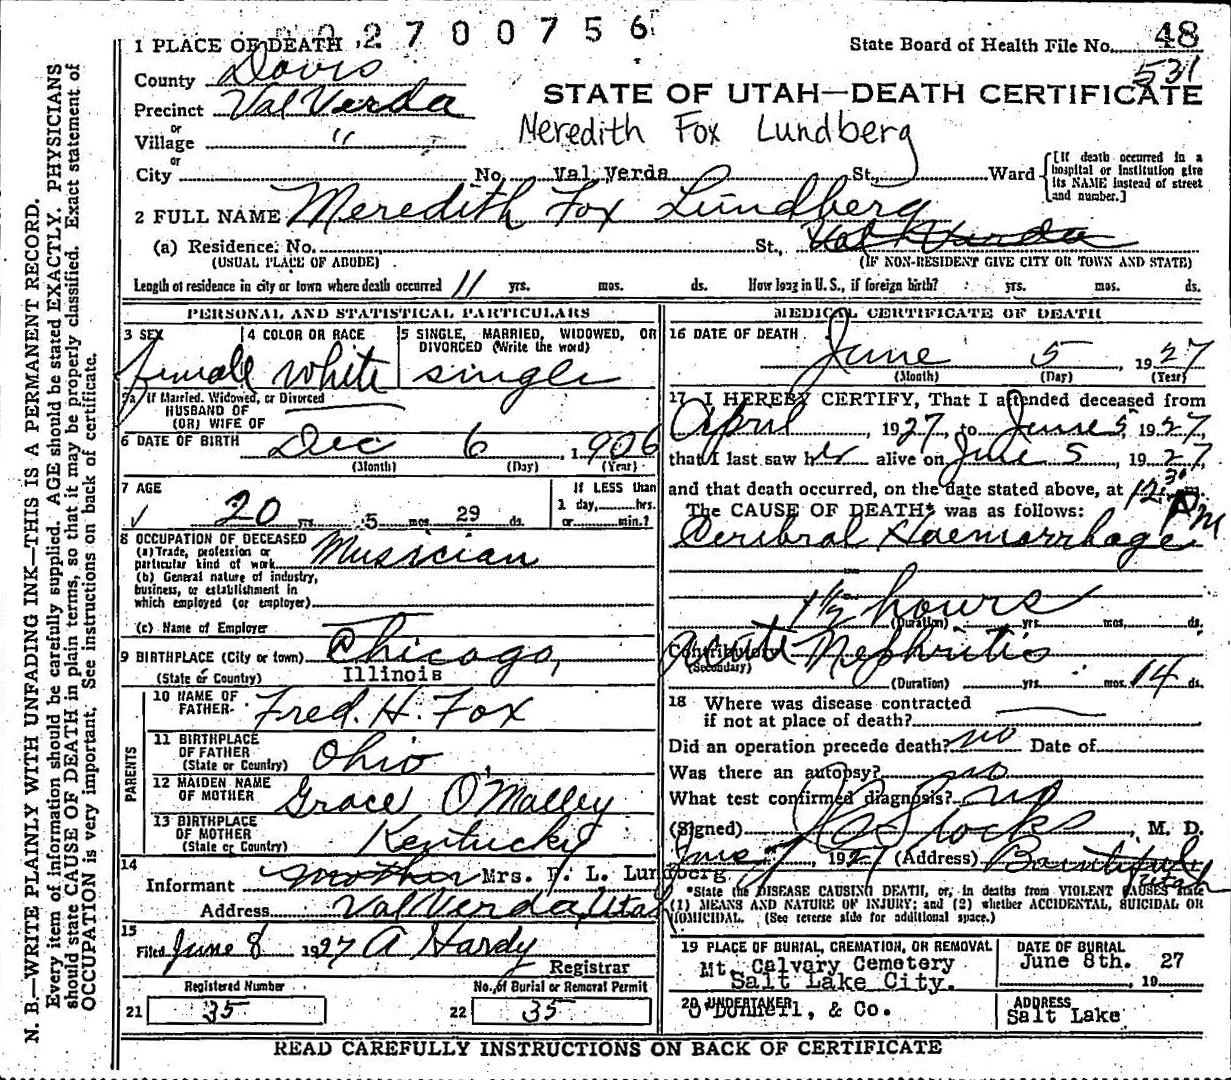 2700756
1 PLACE OF DEATH
State Board of Health File No. 48
531
County Davis
STATE OF UTAH—DEATH CERTIFICATE
Precinct Val Verda
Meredith Fox Lundberg
or
Village "
or
City No. Val Verda St., Ward [If death occurred in a hospital or institution give its NAME instead of street and number.]
2 FULL NAME Meredith Fox Lundberg
(a) Residence: No. St., Val Verda
(USUAL PLACE OF ABODE) (IF NON-RESIDENT GIVE CITY OR TOWN AND STATE)
Length of residence in city or town where death occurred 11 yrs. mos. ds. How long in U. S., if foreign birth? yrs. mos. ds.
PERSONAL AND STATISTICAL PARTICULARS
3 SEX female
4 COLOR OR RACE white
5 SINGLE, MARRIED, WIDOWED, OR DIVORCED (Write the word)
single
5a If Married, Widowed, or Divorced
HUSBAND OF
(OR) WIFE OF
6 DATE OF BIRTH Dec 6, 1906
(Month) (Day) (Year)
7 AGE
20 yrs. 5 mos. 29 ds.
If LESS than
1 day, hrs.
or min.?
8 OCCUPATION OF DECEASED
(a) Trade, profession or
particular kind of work Musician
(b) General nature of industry,
business, or establishment in
which employed (or employer)
(c) Name of Employer
9 BIRTHPLACE (City or town) Chicago,
(State or Country) Illinois
PARENTS
10 NAME OF
FATHER Fred. H. Fox
11 BIRTHPLACE
OF FATHER
(State or Country) Ohio
12 MAIDEN NAME
OF MOTHER Grace O'Malley
13 BIRTHPLACE
OF MOTHER
(State or Country) Kentucky
14
Informant mother Mrs. F. L. Lundberg
Address Val Verda, Utah
15
Filed June 8 1927 A Hardy
Registrar
Registered Number
21 35
No. of Burial or Removal Permit
22 35
MEDICAL CERTIFICATE OF DEATH
16 DATE OF DEATH
June 5, 1927
(Month) (Day) (Year)
17 I HEREBY CERTIFY, That I attended deceased from
April, 1927, to June 5, 1927,
that I last saw her alive on June 5, 1927,
and that death occurred, on the date stated above, at 12:30 m.
AM
The CAUSE OF DEATH* was as follows:
Cerebral Haemorrhage
1 1/2 hours
(Duration) yrs. mos. ds.
Contributory acute Nephritis
(Secondary)
(Duration) yrs. mos. 14 ds.
18 Where was disease contracted
if not at place of death?
Did an operation precede death? no Date of
Was there an autopsy? no
What test confirmed diagnosis? no
(Signed) Stocks, M. D.
June 7, 1927 (Address) Bountiful
Utah
*State the DISEASE CAUSING DEATH, or, in deaths from VIOLENT CAUSES state
(1) MEANS AND NATURE OF INJURY; and (2) whether ACCIDENTAL, SUICIDAL OR
HOMICIDAL. (See reverse side for additional space.)
19 PLACE OF BURIAL, CREMATION, OR REMOVAL
Mt. Calvary Cemetery
Salt Lake City.
DATE OF BURIAL
June 8th. 27
, 19
20 UNDERTAKER
O'Donnell, & Co.
ADDRESS
Salt Lake
READ CAREFULLY INSTRUCTIONS ON BACK OF CERTIFICATE
N. B.—WRITE PLAINLY WITH UNFADING INK—THIS IS A PERMANENT RECORD.
Every item of information should be carefully supplied. AGE should be stated EXACTLY. PHYSICIANS
should state CAUSE OF DEATH in plain terms, so that it may be properly classified. Exact statement of
OCCUPATION is very important. See instructions on back of certificate.